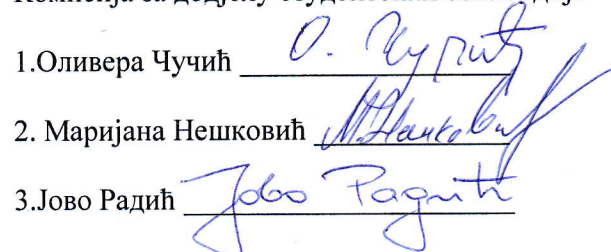 1.Оливера Чучић О. Чучић
2. Маријана Нешковић М.Нешковић
3.Јово Радић Јово Радић